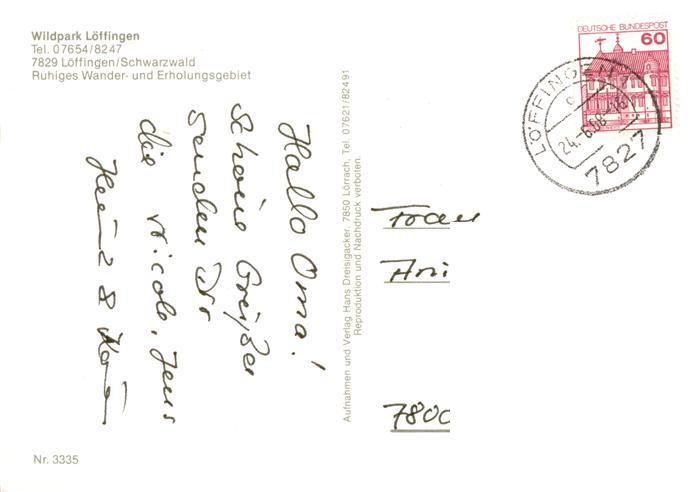 Wildpark Löffingen
Tel. 07654/8247
7829 Löffingen/Schwarzwald
Ruhiges Wander- und Erholungsgebiet
Hallo Oma!
Schöne Grüße
senden Dir
die Nicole, Jens
Heinz &
Nr. 3335
Aufnahmen und Verlag Hans Dreisigacker, 7850 Lörrach, Tel. 07621/82491
Reproduktion und Nachdruck verboten.
DEUTSCHE BUNDESPOST
60
LÖFFINGEN
24.-6.88
7827
Frau
Ani
7800